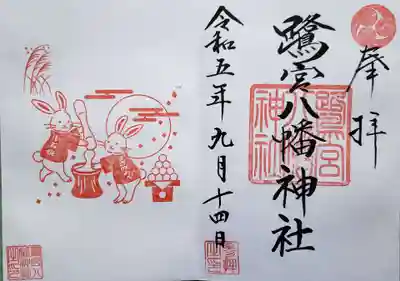 奉拝
鷺宮八幡神社
鷺宮八幡神社
令和五年九月十四日